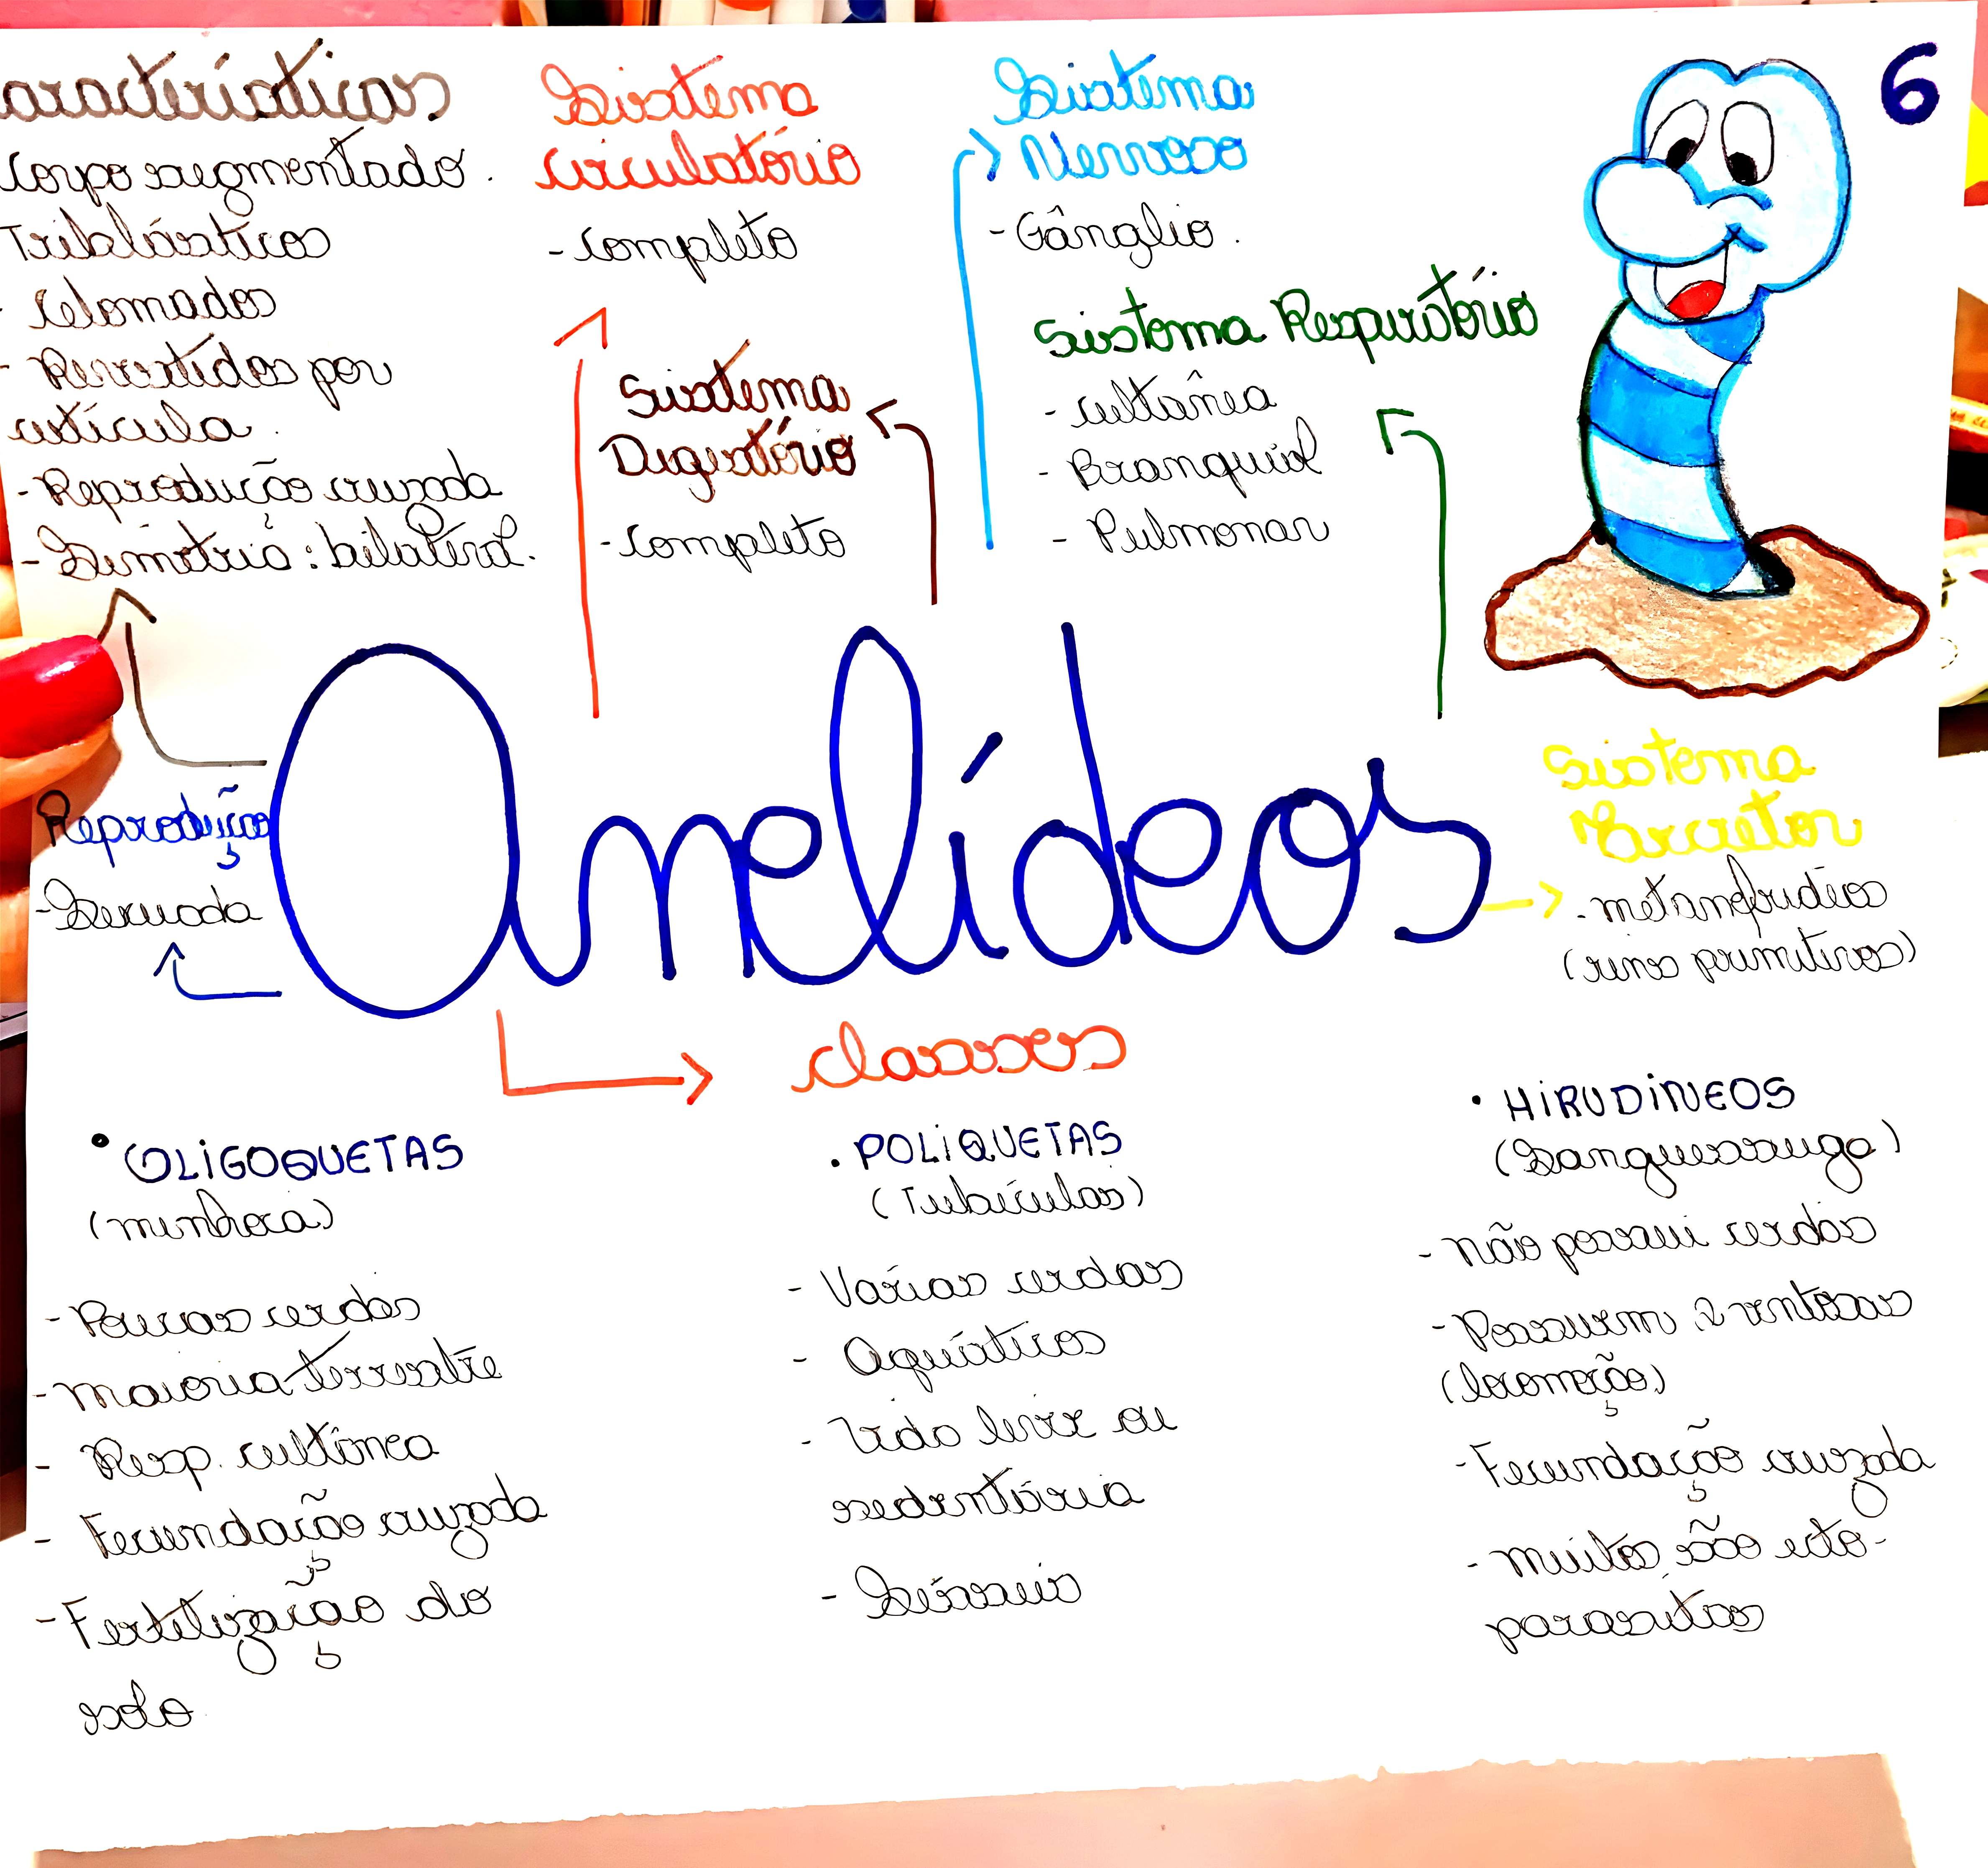 aracterísticas
Corpo segmentado.
Triblásticos
- Celomados
- Revestidos por
cutícula.
- Reprodução cruzada
- Simetria: bilateral.
Sistema
circulatório
- Completo
Sistema
Digestório
- Completo
Sistema
Nervoso
- Gânglio.
Sistema Respiratório
- cultânea
- Branquial
- Pulmonar
6
Anelídeos
Reprodução
- Sexuada
Sistema
Excretor
- metanefrídeos
(rins primitivos)
classes
• OLIGOQUETAS
(minhoca)
- Poucas cerdas
- Maioria terrestre
- Resp. cultânea
- Fecundação cruzada
- Fertilização do
solo
• POLIQUETAS
(Tubículas)
- Várias cerdas
- Aquáticos
- Vida livre ou
sedentária
- Sésseis
• HIRUDINEOS
(Sanguessuga)
- Não possui cerdas
- Possuem 2 ventosas
(locomoção)
- Fecundação cruzada
- Muitos são ecto-
parasitas